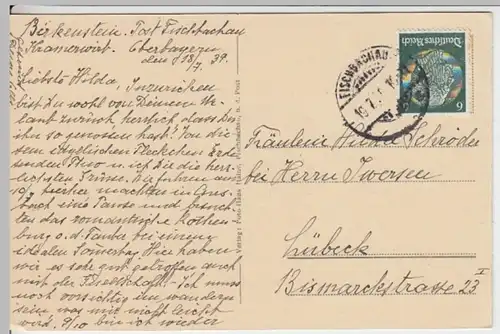 Birkenstein. Post Fischbachau
Kramerwirt. Oberbayern
den 18/7. 39.
Liebste Hilda, Inzwischen
bist Du wohl von Deinem Ur-
laub zurück herrlich, dass Du
ihn so genossen hast! Von die-
sem idyllischen Fleckchen Erde
senden Theo u. ich Dir die herz-
lichsten Grüsse. Wir fuhren am
früher machten in Ans-
bach eine Pause und besuch-
ten das romantische Rothen-
burg o. d. Tauba bei einem
idealen Sonnertag Hier haben
wir es sehr gut getroffen auch
mit der Gesellschaft. Ich muss
noch vorsichtig im wandern
sein was mir nicht leicht
wird. bin ich wieder
Deutsches Reich
6
FISCHBACHAU
Fräulein Hilda Schröder
bei Herrn Iwersen
Lübeck
Bismarckstrasse 23 I